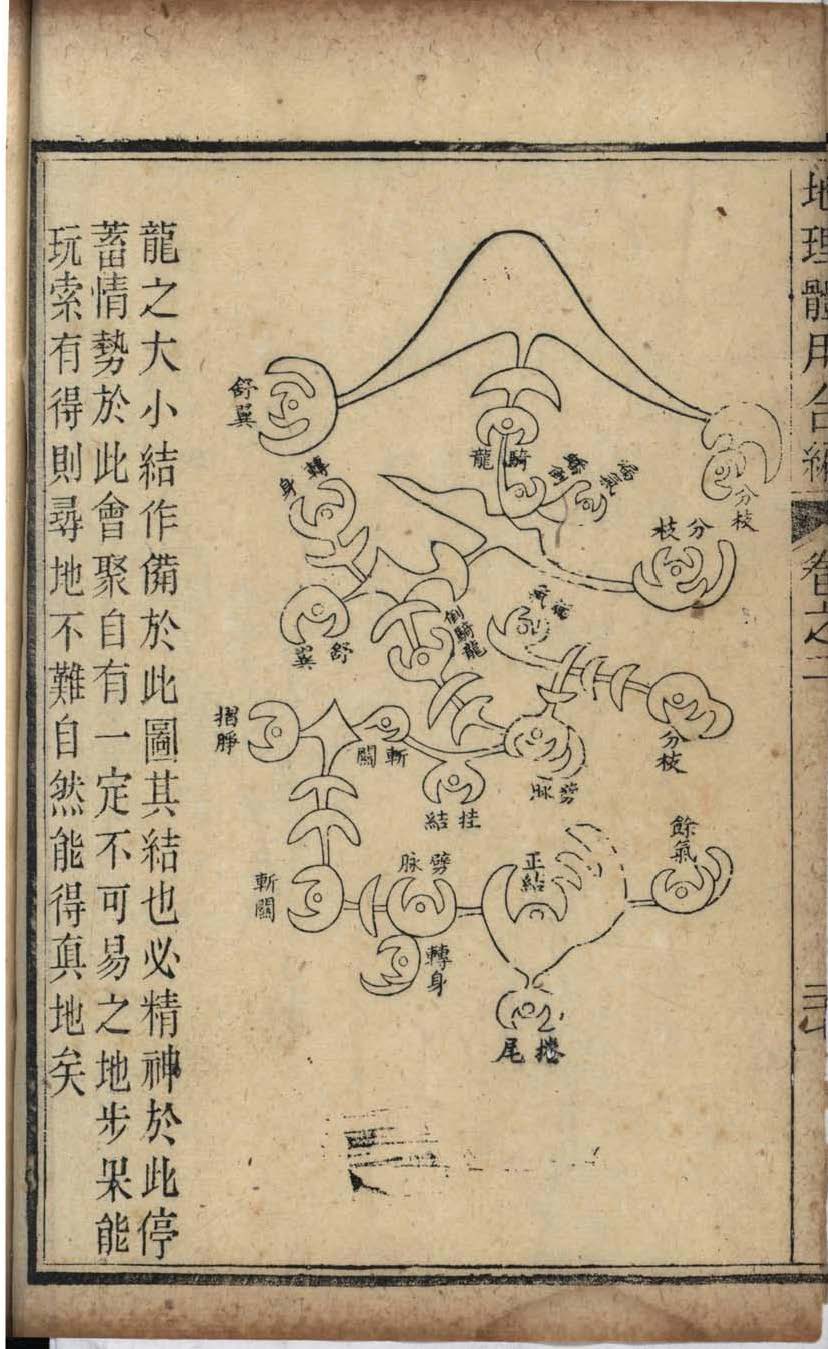 地理體用合編
卷之二
分枝
騎龍
舒翼
洩氣
分枝
轉身
洩氣
倒騎龍
舒翼
分枝
斬關
劈脉
挂結
餘氣
正結
劈脉
斬關
轉身
捲尾
龍之大小結作備於此圖其結也必精神於此停
蓄情勢於此會聚自有一定不可易之地步果能
玩索有得則尋地不難自然能得真地矣